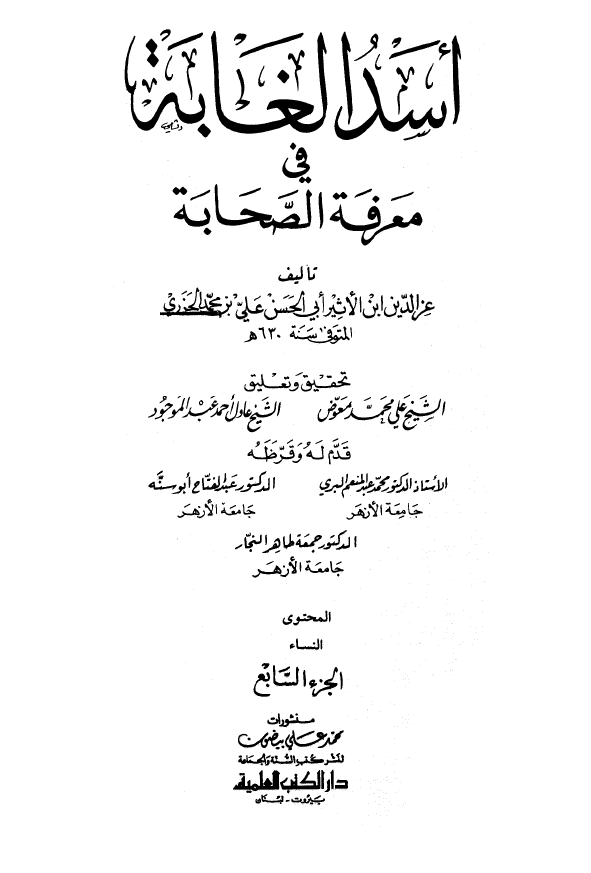 أسد الغابة
في
معرفة الصحابة
تأليف
عز الدين ابن الأثير أبي الحسن علي بن محمد الجزري
المتوفى سنة ٦٣٠ هـ
تحقيق وتعليق
الشيخ علي محمد معوض الشيخ عادل أحمد عبد الموجود
قدم له وقرظه
الأستاذ الدكتور محمد عبد المنعم البري الدكتور عبد الفتاح أبو سنة
جامعة الأزهر جامعة الأزهر
الدكتور جمعة طاهر النجار
جامعة الأزهر
المحتوى
النساء
الجزء السابع
منشورات
محمد علي بيضون
لنشر كتب السنة والجماعة
دار الكتب العلمية
بيروت - لبنان